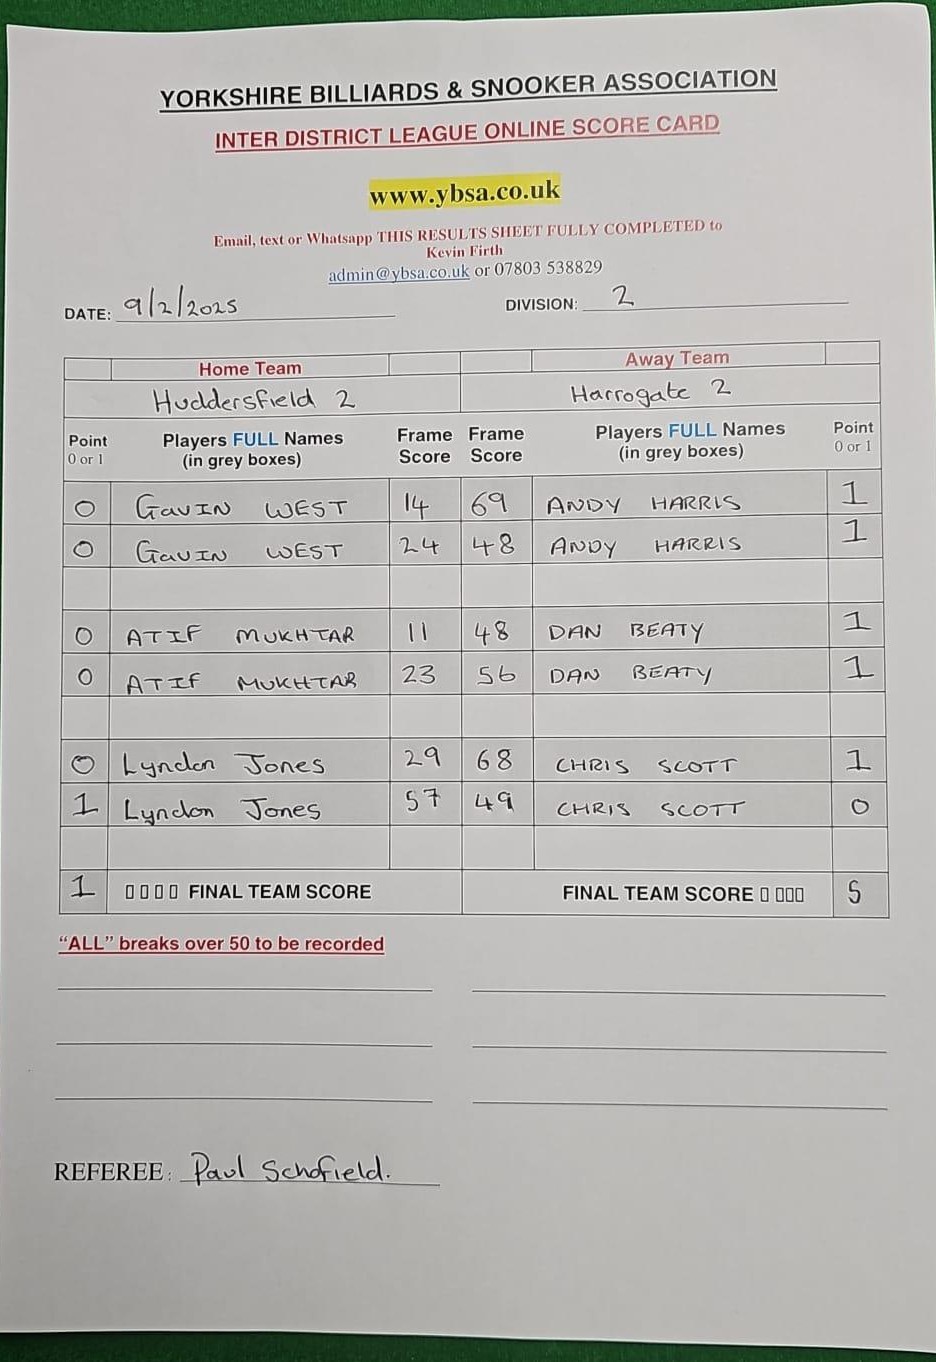 YORKSHIRE BILLIARDS & SNOOKER ASSOCIATION
INTER DISTRICT LEAGUE ONLINE SCORE CARD
www.ybsa.co.uk
Email, text or Whatsapp THIS RESULTS SHEET FULLY COMPLETED to
Kevin Firth
admin@ybsa.co.uk or 07803 538829
DATE: 9/2/2025 DIVISION: 2
Home Team Away Team
Huddersfield 2 Harrogate 2
Point Players FULL Names Frame Frame Players FULL Names Point
0 or 1 (in grey boxes) Score Score (in grey boxes) 0 or 1
0 GAVIN WEST 14 69 ANDY HARRIS 1
0 GAVIN WEST 24 48 ANDY HARRIS 1
0 ATIF MUKHTAR 11 48 DAN BEATY 1
0 ATIF MUKHTAR 23 56 DAN BEATY 1
0 Lyndon Jones 29 68 CHRIS SCOTT 1
1 Lyndon Jones 57 49 CHRIS SCOTT 0
1 FINAL TEAM SCORE FINAL TEAM SCORE 5
"ALL" breaks over 50 to be recorded
REFEREE: Paul Schofield.